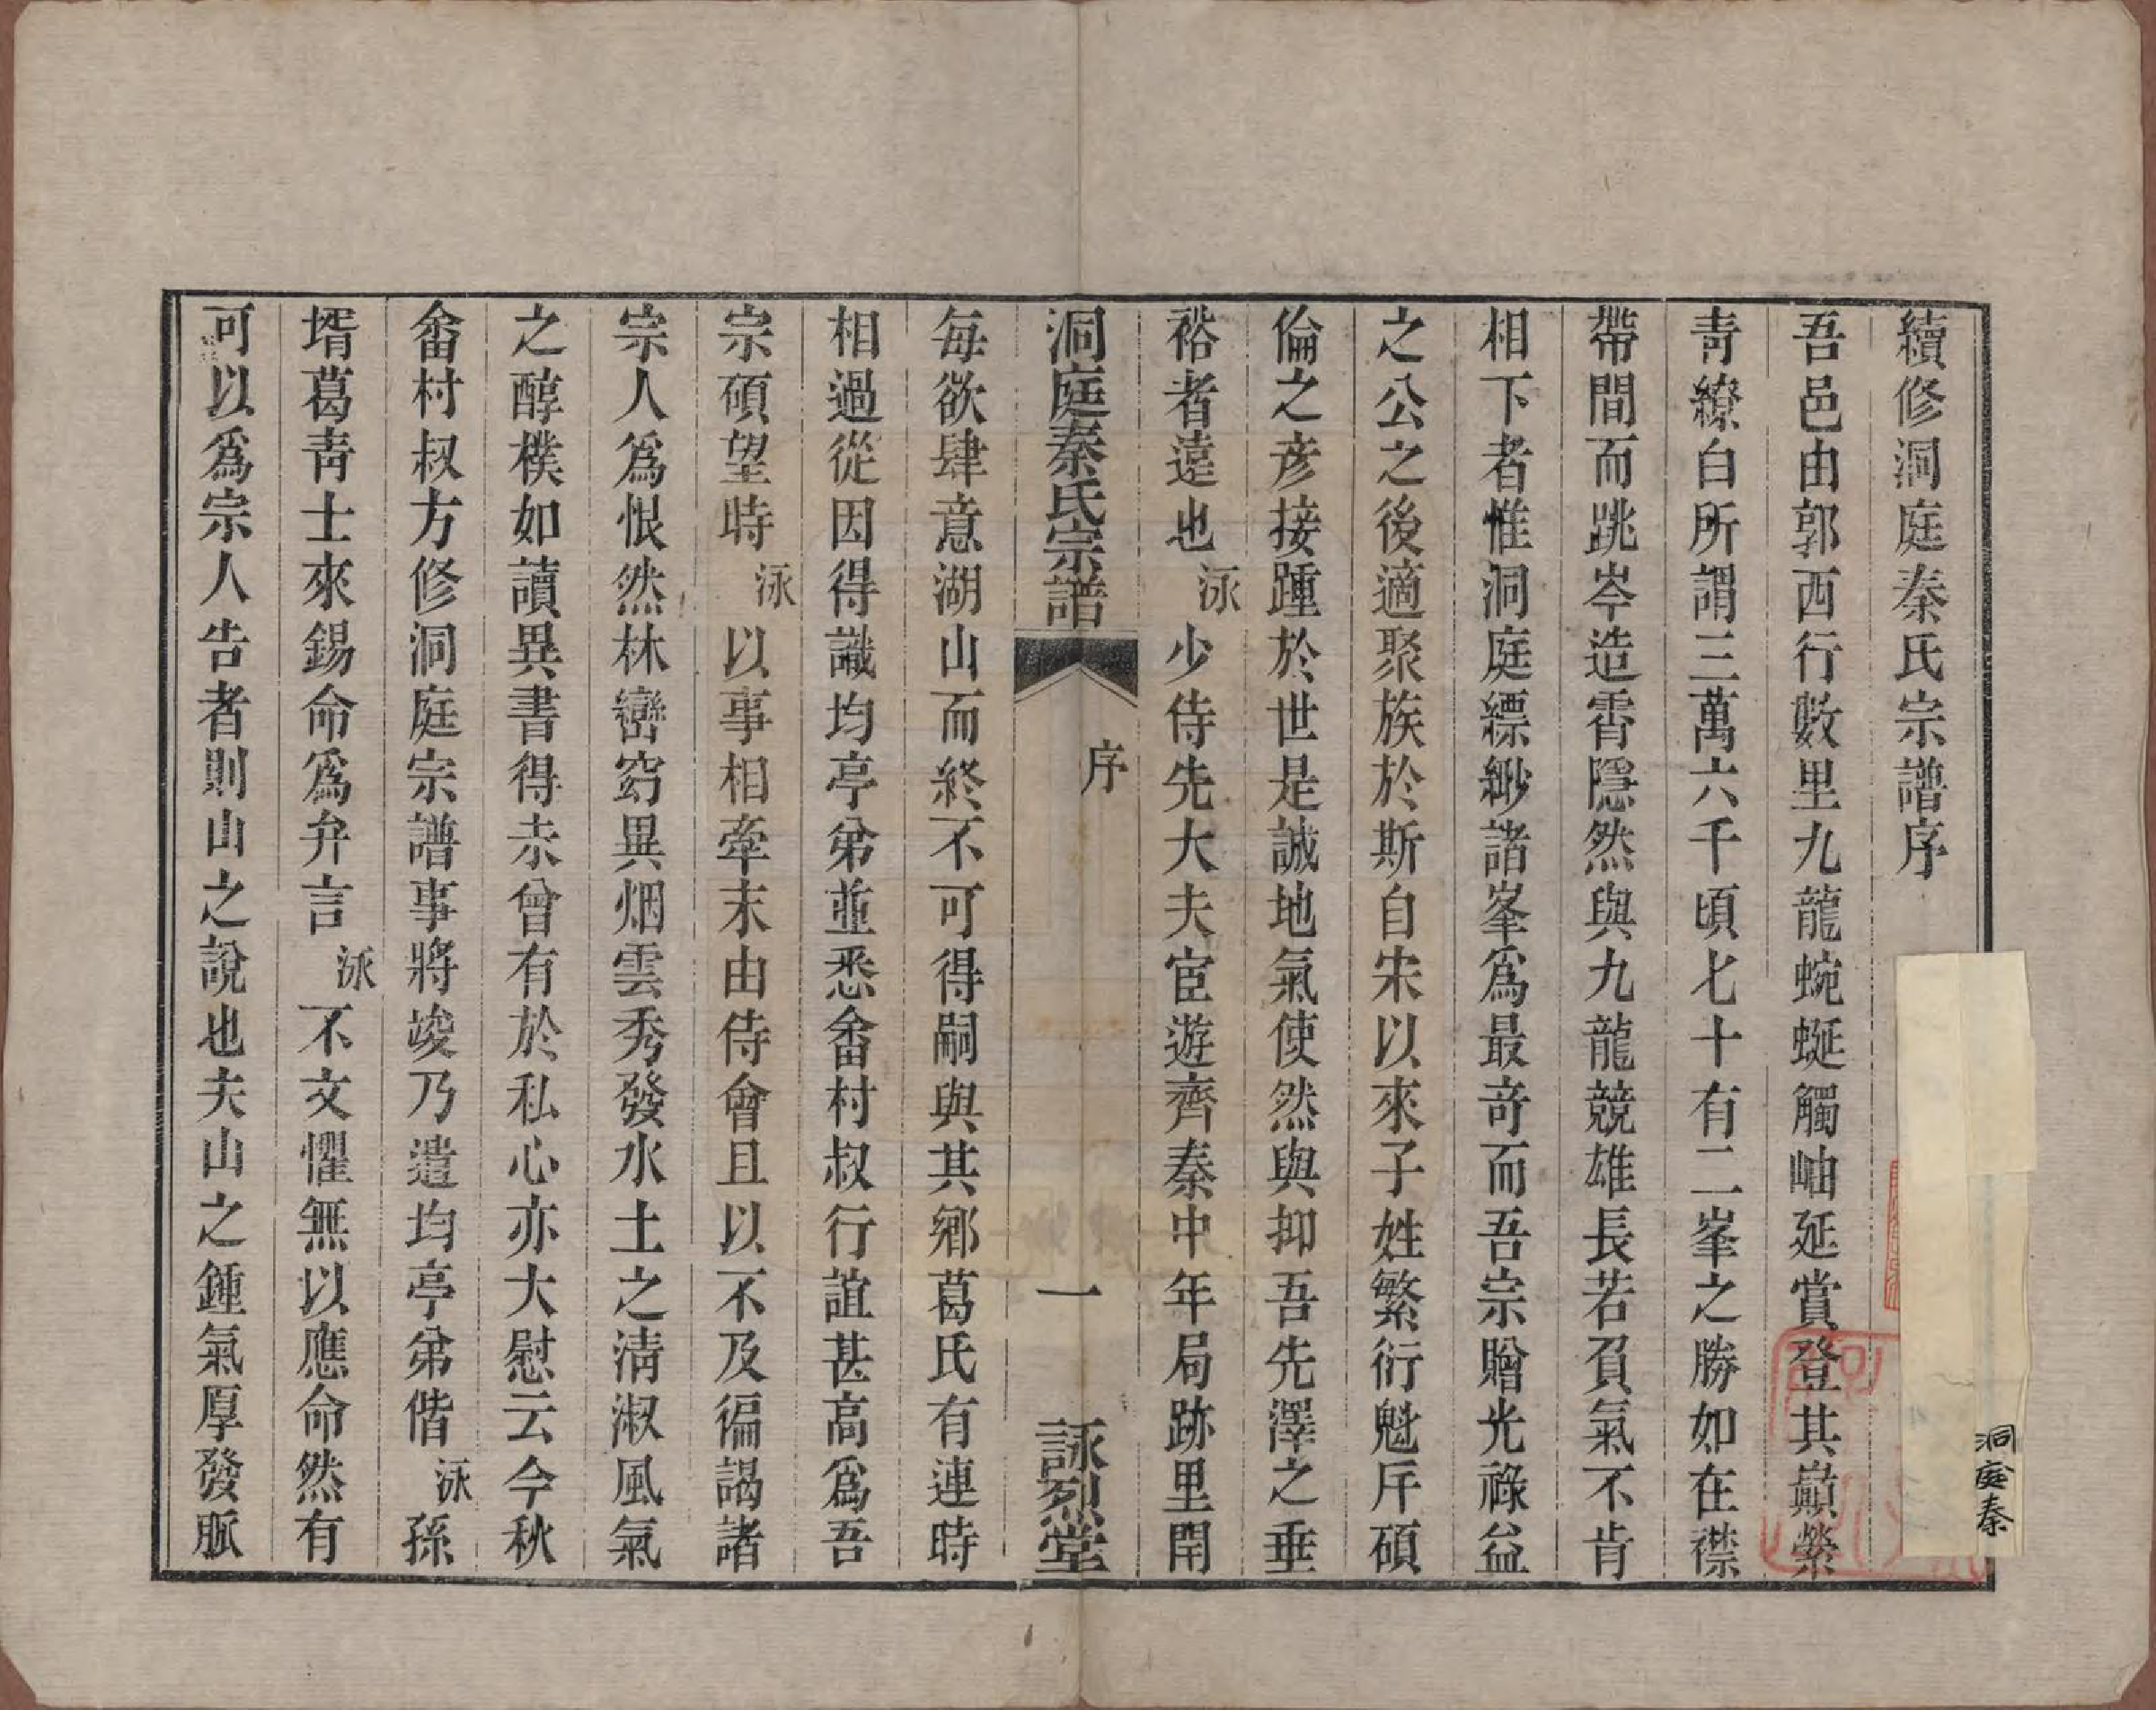 續修洞庭秦氏宗譜序
吾邑由郭西行數里九龍蜿蜒觸岫延賞登其巔縈
靑繚白所謂三萬六千頃七十有二峯之勝如在襟
帶間而跳岑造霄隱然與九龍競雄長若負氣不肯
相下者惟洞庭縹緲諸峯爲最竒而吾宗贈光祿益
之公之後適聚族於斯自宋以來子姓繁衍魁斥碩
倫之彥接踵於世是誠地氣使然與抑吾先澤之垂
裕者遠也泳少侍先大夫宦遊齊秦中年局跡里閈
洞庭秦氏宗譜
序
一
詠烈堂
每欲肆意湖山而終不可得嗣與其鄉葛氏有連時
相過從因得識均亭弟並悉畬村叔行誼甚高爲吾
宗碩望時泳以事相牽末由侍會且以不及徧謁諸
宗人爲恨然林巒窈異烟雲秀發水土之淸淑風氣
之醇樸如讀異書得未曾有於私心亦大慰云今秋
畬村叔方修洞庭宗譜事將竣乃遣均亭弟偕泳孫
壻葛靑士來錫命爲弁言泳不文懼無以應命然有
可以爲宗人告者則山之說也夫山之鍾氣厚發脈
洞庭秦